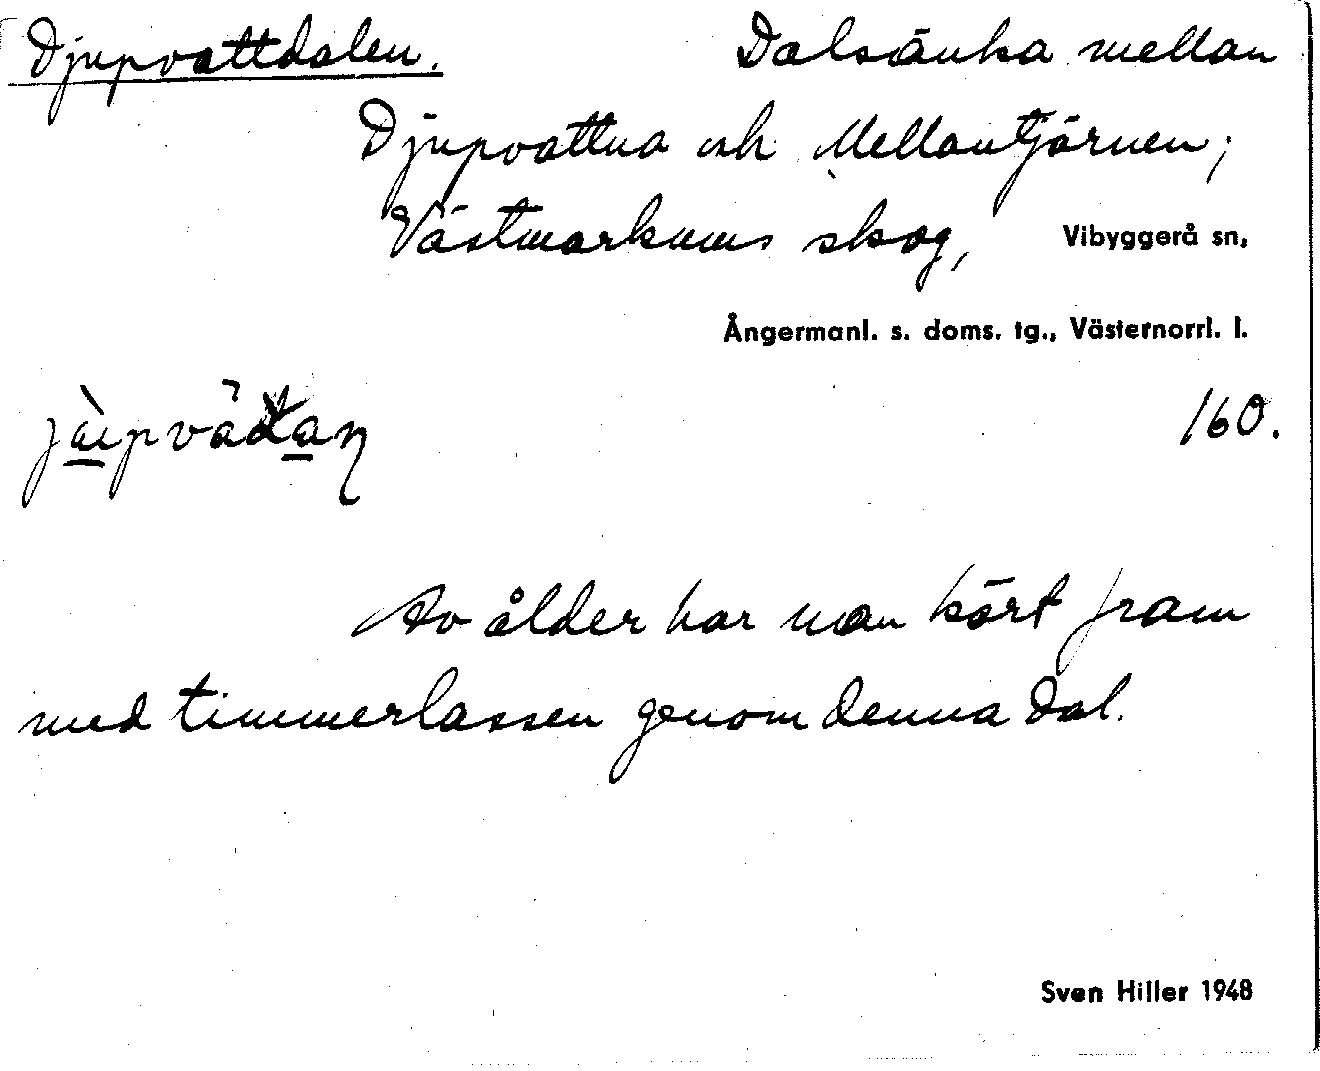 Djupvattdalen. Dalsänka mellan
Djupvattna och Mellantjärnen;
Västmarkums skog, Vibyggerå sn,
Ångermanl. s. doms. tg., Västernorrl. l.
160.
Av ålder har man kört fram
med timmerlassen genom denna dal.
Sven Hiller 1948